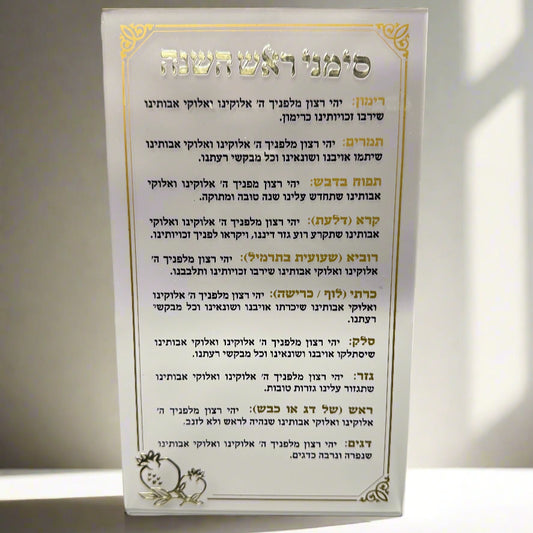 סימני ראש השנה
רימון: יהי רצון מלפניך ה' אלוקינו ואלוקי אבותינו
שירבו זכויותינו כרימון.
תמרים: יהי רצון מלפניך ה' אלוקינו ואלוקי אבותינו
שיתמו אויבנו ושונאינו וכל מבקשי רעתנו.
תפוח בדבש: יהי רצון מפניך ה' אלוקינו ואלוקי
אבותינו שתחדש עלינו שנה טובה ומתוקה.
קרא (דלעת): יהי רצון מלפניך ה' אלוקינו ואלוקי
אבותינו שתקרע רוע גזר דיננו, ויקראו לפניך זכויותינו.
רוביא (שעועית בתרמיל): יהי רצון מלפניך ה'
אלוקינו ואלוקי אבותינו שירבו זכויותינו ותלבבנו.
כרתי (לוף / כרישה): יהי רצון מלפניך ה' אלוקינו
ואלוקי אבותינו שיכרתו אויבנו ושונאינו וכל מבקשי
רעתנו.
סלק: יהי רצון מלפניך ה' אלוקינו ואלוקי אבותינו
שיסתלקו אויבנו ושונאינו וכל מבקשי רעתנו.
גזר: יהי רצון מלפניך ה' אלוקינו ואלוקי אבותינו
שתגזור עלינו גזרות טובות.
ראש (של דג או כבש): יהי רצון מלפניך ה'
אלוקינו ואלוקי אבותינו שנהיה לראש ולא לזנב.
דגים: יהי רצון מלפניך ה' אלוקינו ואלוקי אבותינו
שנפרה ונרבה כדגים.